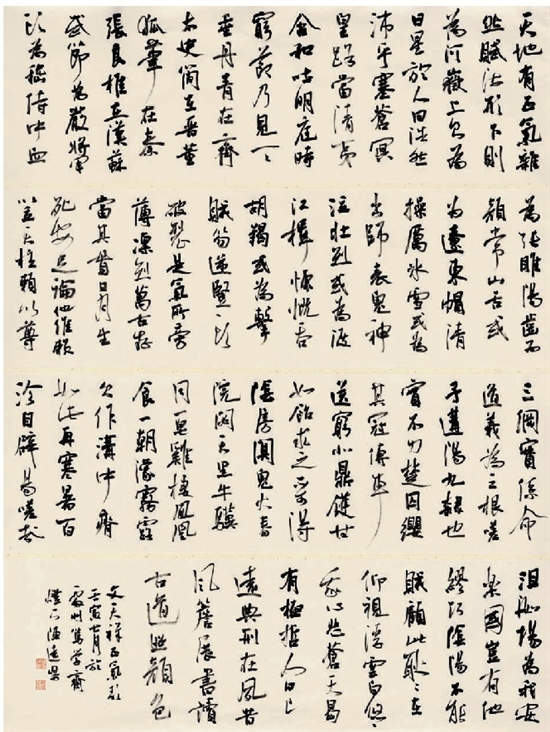 天地有正氣雜
然賦流形下則
為河嶽上則為
日星於人曰浩然
沛乎塞蒼冥
皇路當清夷
含和吐明庭時
窮節乃見一一
垂丹青在齊
太史簡在晉董
狐筆在秦
張良椎在漢蘇
武節為嚴將軍
頭為嵇侍中血
為張睢陽齒為
顏常山舌或
為遼東帽清
操厲冰雪或為
出師表鬼神
泣壯烈或為渡
江楫慷慨吞
胡羯或為擊
賊笏逆豎頭
破裂是氣所旁
薄凜烈萬古存
當其貫日月生
死安足論地維賴
以立天柱賴以尊
三綱實係命
道義為之根嗟
予遘陽九隸也
實不力楚囚纓
其冠傳車
送窮北鼎鑊甘
如飴求之不可得
陰房闃鬼火春
院閟天黑牛驥
同一皂雞棲鳳凰
食一朝濛霧露
分作溝中瘠
如此再寒暑百
沴自辟易嗟哉
沮洳場為我安
樂國豈有他
繆巧陰陽不能
賊顧此耿耿在
仰視浮雲白悠悠
我心悲蒼天曷
有極哲人日已
遠典刑在夙昔
風簷展書讀
古道照顏色
文天祥正氣歌
壬寅七月於
處州篤學齋